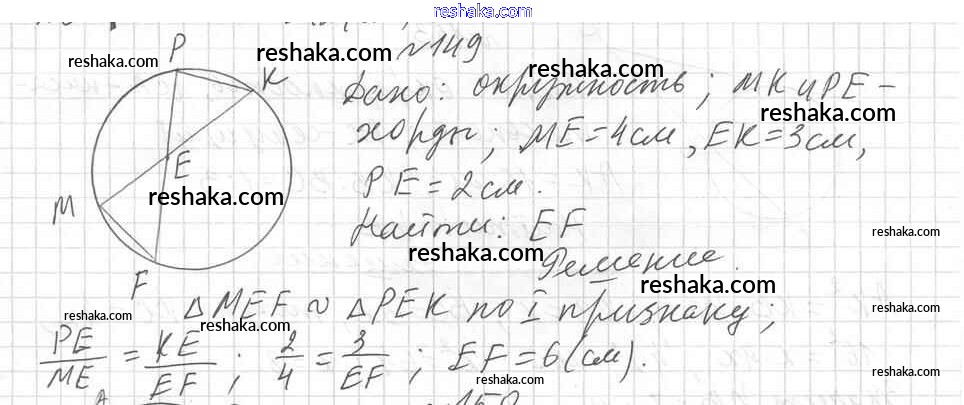 reshaka.com
№149
P
K
E
M
F
Дано: окружность; MK и PE –
хорды; ME = 4 см, EK = 3 см,
PE = 2 см.
Найти: EF
Решение.
△MEF ~ △PEK по I признаку;
PE/ME = KE/EF; 2/4 = 3/EF; EF = 6 (см).
reshaka.com
reshaka.com
reshaka.com
reshaka.com
reshaka.com
reshaka.com
reshaka.com
reshaka.com
reshaka.com
reshaka.com
reshaka.com
reshaka.com
reshaka.com
150